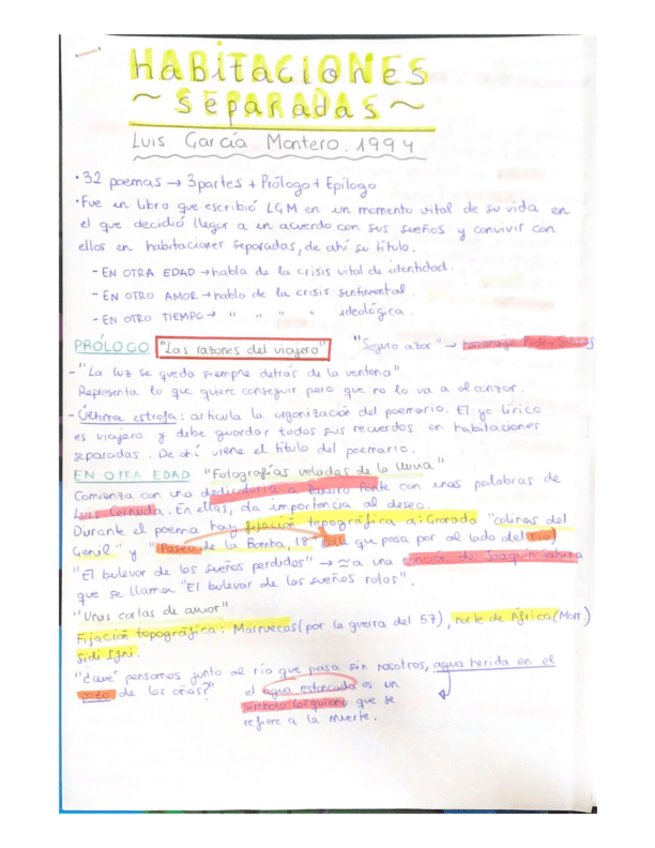 Habitaciones
~ separadas ~
Luis García Montero. 1994
· 32 poemas → 3 partes + Prólogo + Epílogo
· Fue un libro que escribió LGM en un momento vital de su vida en
el que decidió llegar a un acuerdo con sus sueños y convivir con
ellos en habitaciones separadas, de ahí su título.
- EN OTRA EDAD → habla de la crisis vital de identidad.
- EN OTRO AMOR → habla de la crisis sentimental.
- EN OTRO TIEMPO → " " " " ideológica.
PRÓLOGO "Las razones del viajero" "Seguro azar" → homenaje Pedro Salinas
- "La luz se queda siempre detrás de la ventana"
Representa lo que quiere conseguir pero que no lo va a alcanzar.
- Última estrofa: articula la organización del poemario. El yo lírico
es viajero y debe guardar todos sus recuerdos en habitaciones
separadas. De ahí viene el título del poemario.
EN OTRA EDAD "Fotografías veladas de la lluvia"
Comienza con una dedicatoria a con unas palabras de
Luis Cernuda. En ellas, da importancia al deseo.
Durante el poema hay fijación topográfica a: Granada "colinas del
Genil" y "Paseo de la Bomba, 18" que pasa por al lado del río)
"El bulevar de los sueños perdidos" → ≃ a una canción de Joaquín Sabina
que se llama "El bulevar de los sueños rotos".
"Unas cartas de amor"
Fijación topográfica: Marruecos (por la guerra del 57), norte de África (Marr.)
Sidi Ifni.
"¿Qué pensamos junto al río que pasa sin nosotros, agua herida en el
pozo de los años?" el agua estancada es un
símbolo lorquiano que se
refiere a la muerte.